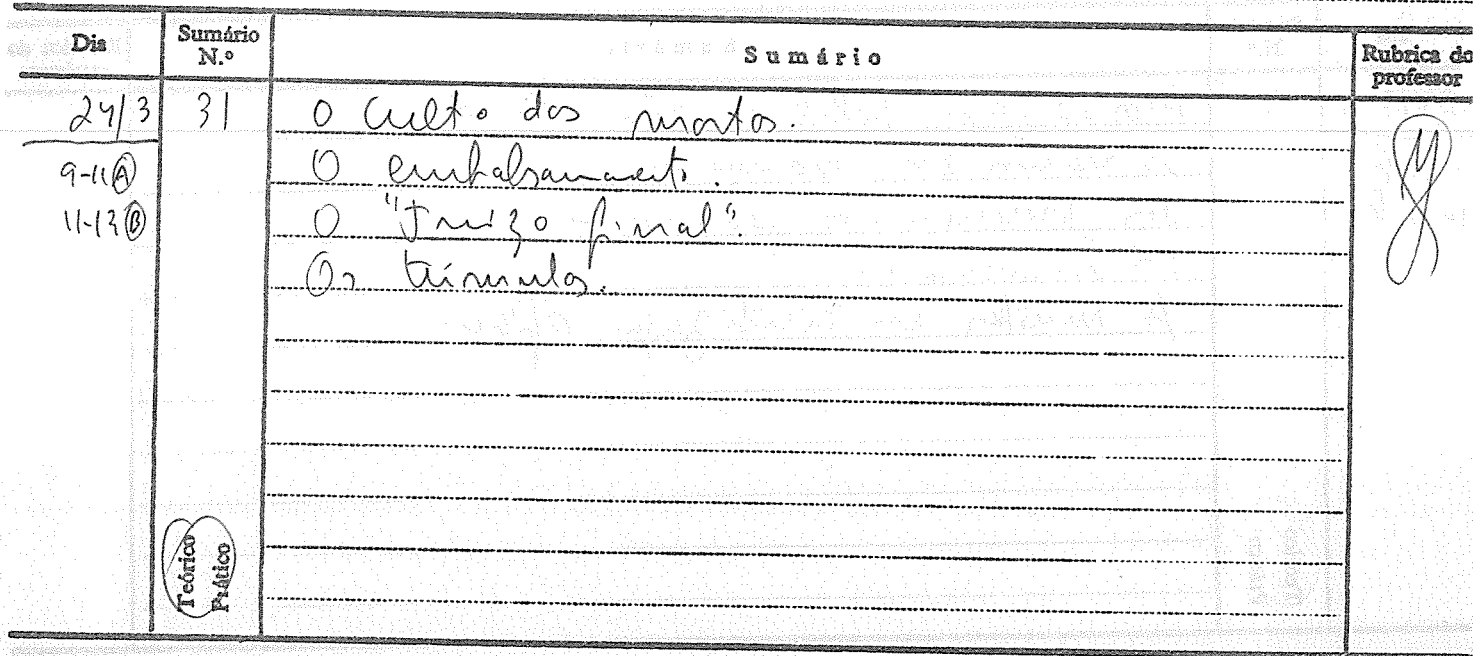 Dia Sumário N.º Sumário Rubrica do professor
24/3 31 O Culto dos mortos.
9-11 A O embalsamamento.
11-13 B O "Juízo final".
Os túmulos.
Teórico
Prático